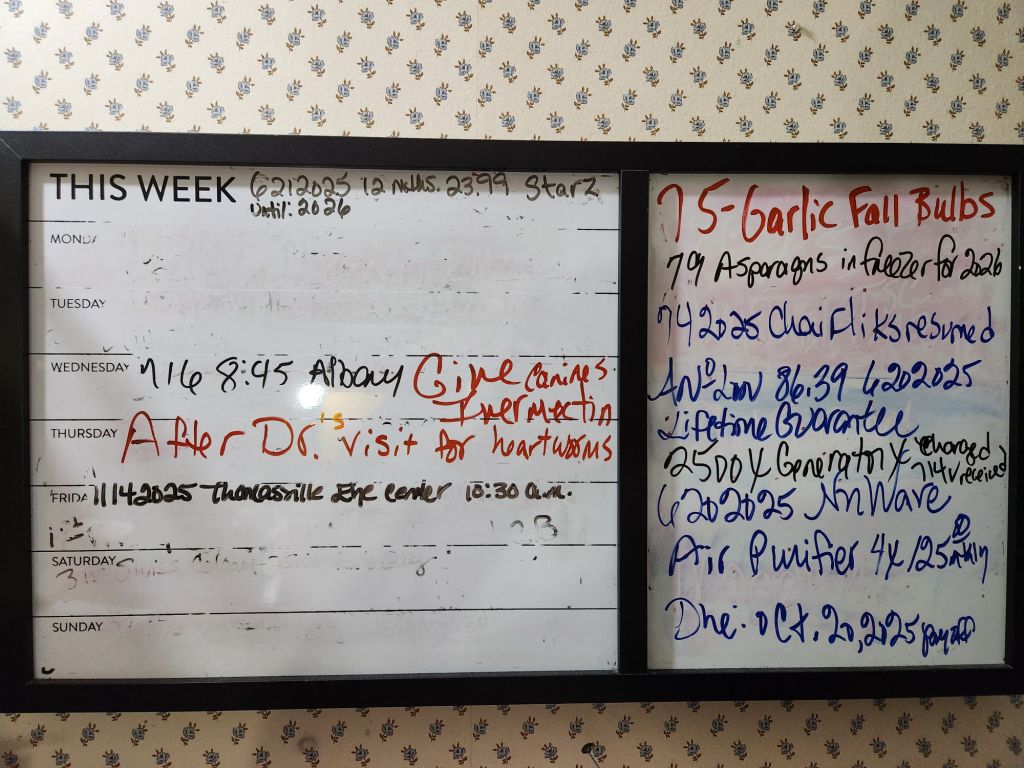 THIS WEEK 6212025 12 mths. 23.99 Starz
Until: 2026
MONDAY
TUESDAY
WEDNESDAY 716 8:45 Albany Give Canines
Ivermectin
THURSDAY After Dr.'s visit for heartworms
FRIDA 11142025 Thomasville Eye Center 10:30 a.m.
SATURDAY
SUNDAY
75-Garlic Fall Bulbs
79 Asparagus in freezer for 2026
742025 resumed
86.39 6202025
Lifetime Guarantee
2500X Generator X charged
714 received
6202025 NnWave
Air Purifier 4X/25
Due: Oct. 20, 2025 payoff